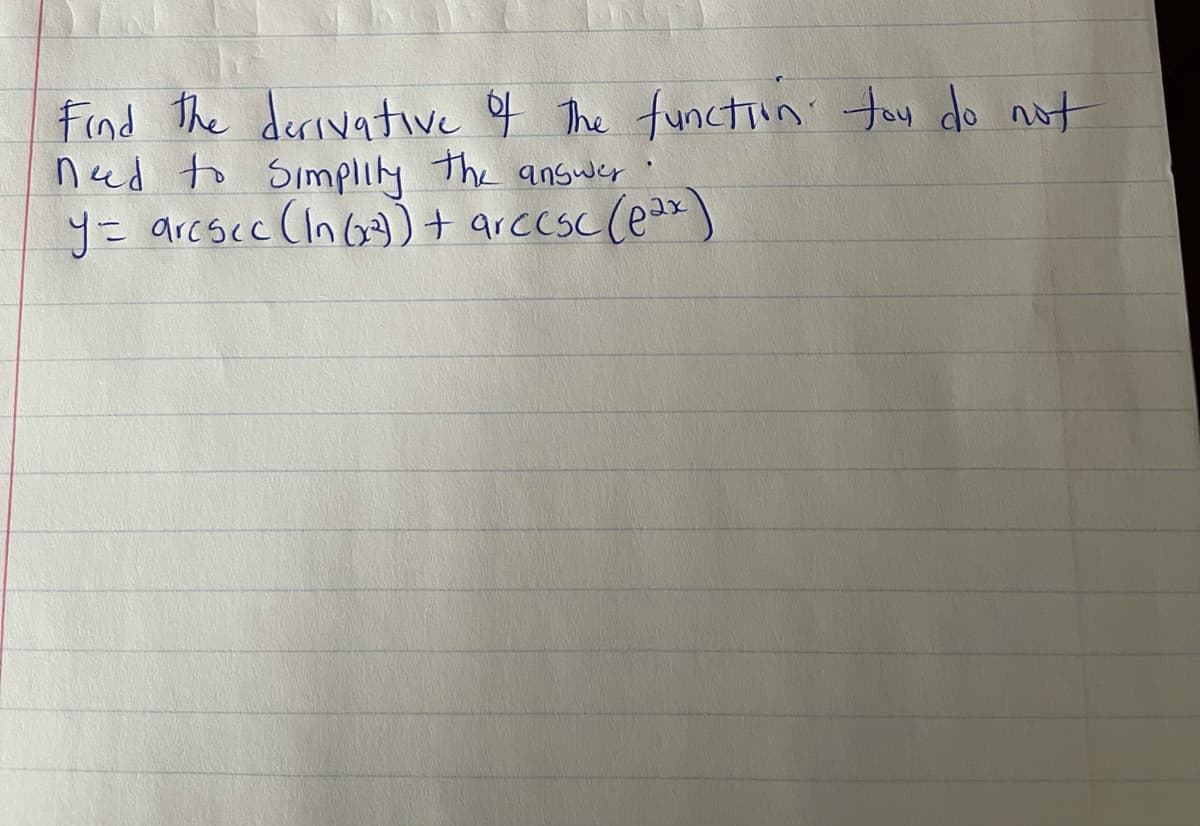 Find the derivative of the function. You do not
need to simplify the answer.
y = arcsec (ln (x²)) + arccsc (e²ˣ)